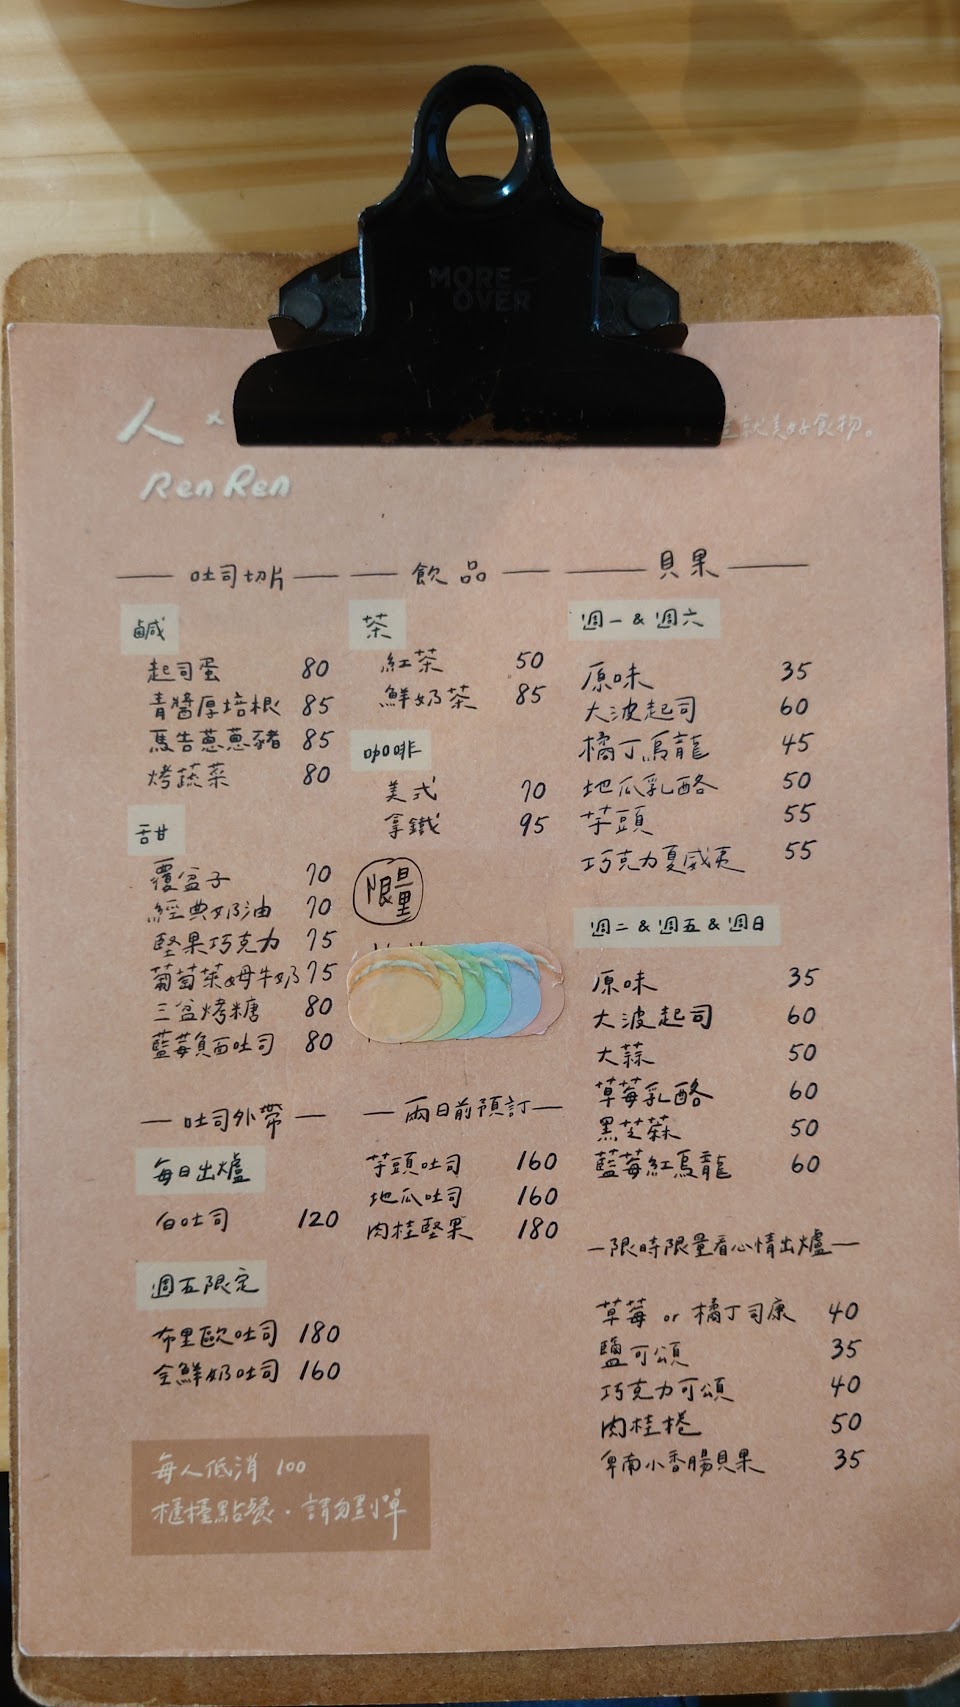 MORE
OVER
人 ×
就美好食物。
Ren Ren
吐司切片
鹹
起司蛋 80
青醬厚培根 85
馬告蔥蔥豬 85
烤蔬菜 80
甜
覆盆子 70
經典奶油 70
堅果巧克力 75
葡萄萊姆牛奶 75
三盆烤糖 80
藍莓負面吐司 80
吐司外帶
每日出爐
白吐司 120
週五限定
布里歐吐司 180
全鮮奶吐司 160
每人低消 100
櫃檯點餐・請勿劃單
飲品
茶
紅茶 50
鮮奶茶 85
咖啡
美式 70
拿鐵 95
限量
兩日前預訂
芋頭吐司 160
地瓜吐司 160
肉桂堅果 180
貝果
週一 & 週六
原味 35
大波起司 60
橘丁烏龍 45
地瓜乳酪 50
芋頭 55
巧克力夏威夷 55
週二 & 週五 & 週日
原味 35
大波起司 60
大蒜 50
草莓乳酪 60
黑芝麻 50
藍莓紅烏龍 60
限時限量看心情出爐
草莓 or 橘丁司康 40
鹽可頌 35
巧克力可頌 40
肉桂捲 50
卑南小香腸貝果 35